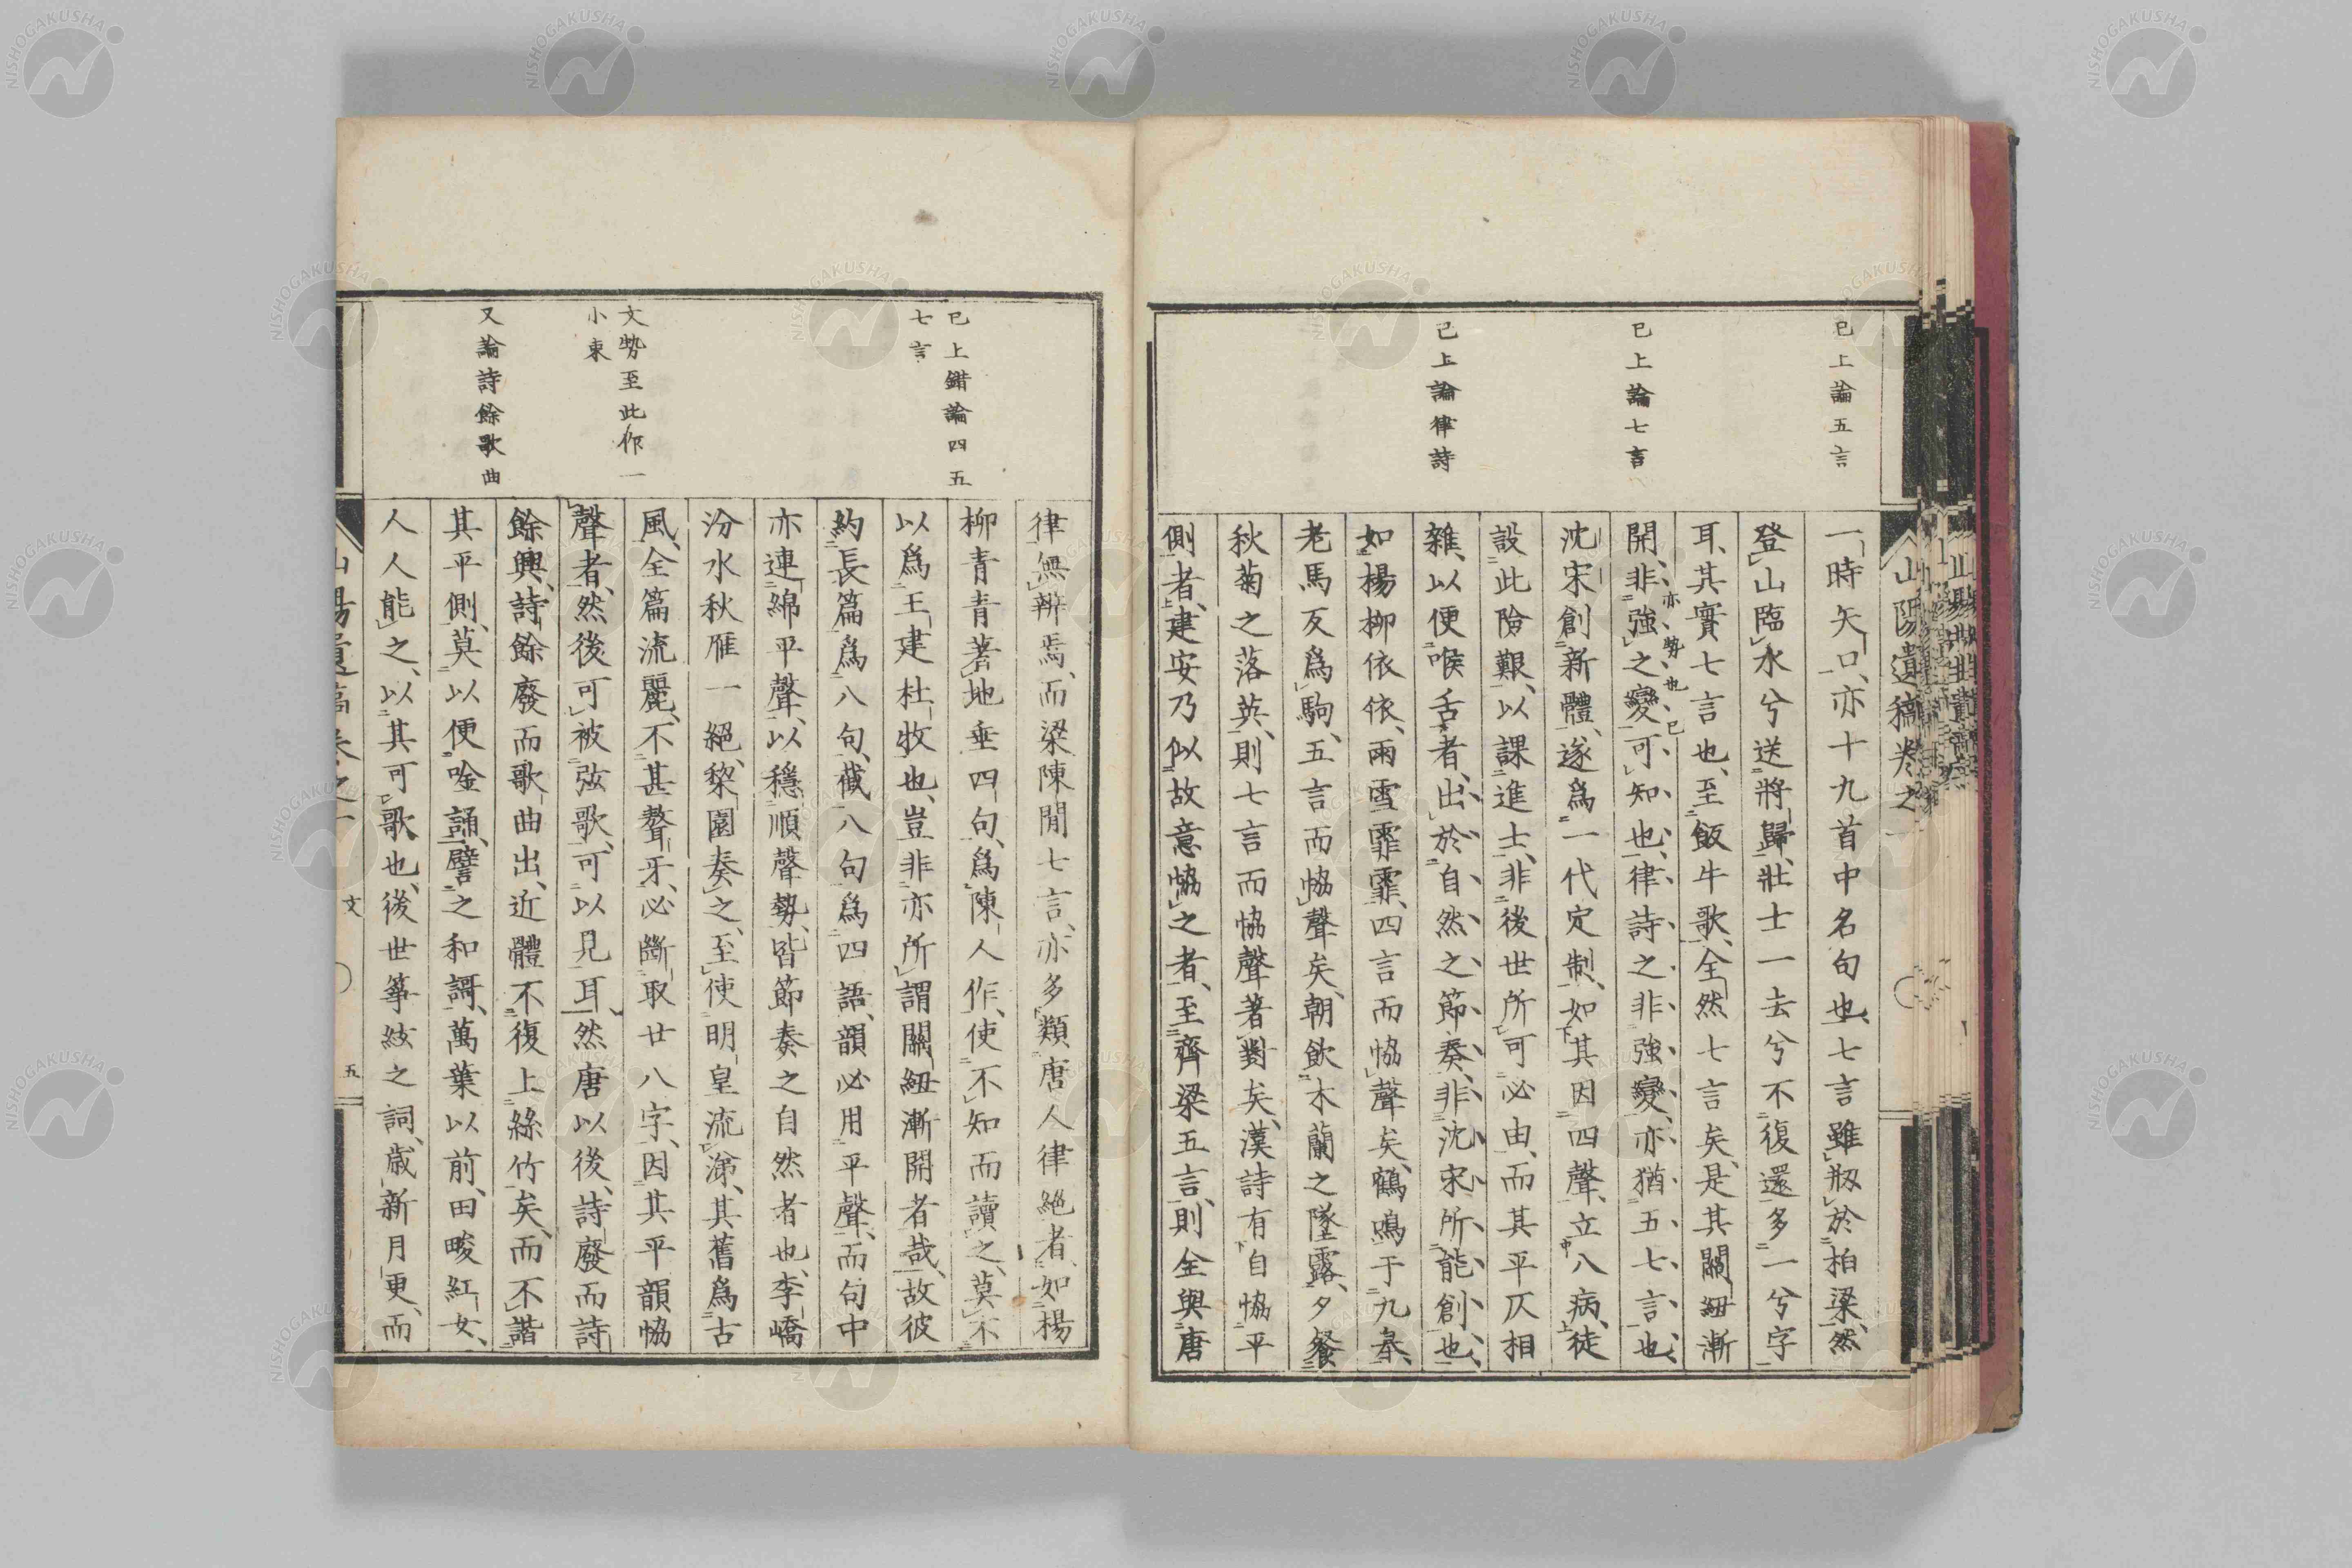 已上論五言
已上論七言
已上論律詩
山陽遺稿卷之一
一時矢口、亦十九首中名句也、七言雖刱於柏梁、然
登山臨水兮送將歸、壯士一去兮不復還多一兮字
耳、其實七言也、至飯牛歌、全然七言矣、是其關紐漸
開、非強之變可知也、律詩之非強變、亦猶五七言也、
亦勢也已
沈宋創新體、遂爲一代定制、如其因四聲、立八病、徒
設此險艱、以課進士、非後世所可必由、而其平仄相
雜、以便喉舌者、出於自然之節奏、非沈宋所能創也、
如楊柳依依、雨雪霏霏、四言而恊聲矣、鶴鳴于九皋、
老馬反爲駒、五言而恊聲矣、朝飲木蘭之墜露、夕餐
秋菊之落英、則七言而恊聲著對矣、漢詩有自恊平
側者、建安乃似故意恊之者、至齊梁五言、則全與唐
已上錯論四五
七言
文勢至此作一
小束
又論詩餘歌曲
律無辨焉、而梁陳閒七言、亦多類唐人律絕者、如楊
柳青青著地垂四句、爲陳人作、使不知而讀之、莫不
以爲王建杜牧也、豈非亦所謂關紐漸開者哉、故彼
約長篇爲八句、截八句爲四語、韻必用平聲、而句中
亦連綿平聲、以穩順聲勢、皆節奏之自然者也、李嶠
汾水秋雁一絕、棃園奏之、至使明皇流涕、其舊爲古
風、全篇流麗、不甚聱牙、必斷取廿八字、因其平韻恊
聲者、然後可被弦歌、可以見耳、然唐以後、詩廢而詩
餘興、詩餘廢而歌曲出、近體不復上絲竹矣、而不諧
其平側、莫以便唫誦、譬之和謌、萬葉以前、田畯紅女、
人人能之、以其可歌也、後世筝絃之詞、歲新月更、而
山陽遺稿卷之一
文
五